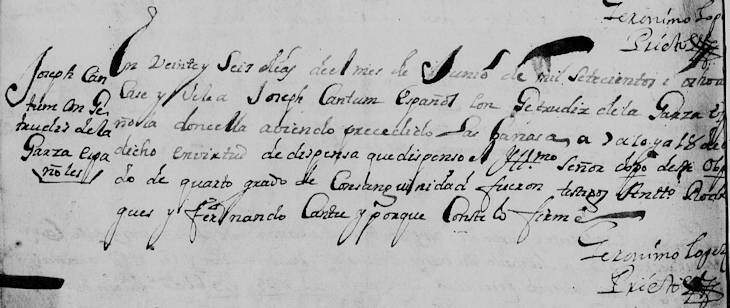 Geronimo Lop
Prieto
Joseph Can
tum con Ge
trudis de la
Garza espa
ñoles
En Veinte y Seis dias de el mes de Junio de mil setecientos i ochen
Case y Vele a Joseph Cantum Español con Getrudiz de la Garza Es
ñola doncella abiendo precedido las banas a
dicho en virtud de dispensa que dispenso el Yllmo Señor obpo de este Obp
do de quarto grado de Consanguinidad fueron testigos Antto Rodr
gues y Fernando Cantu y porque Conste lo firme
Geronimo Lopez
Prieto